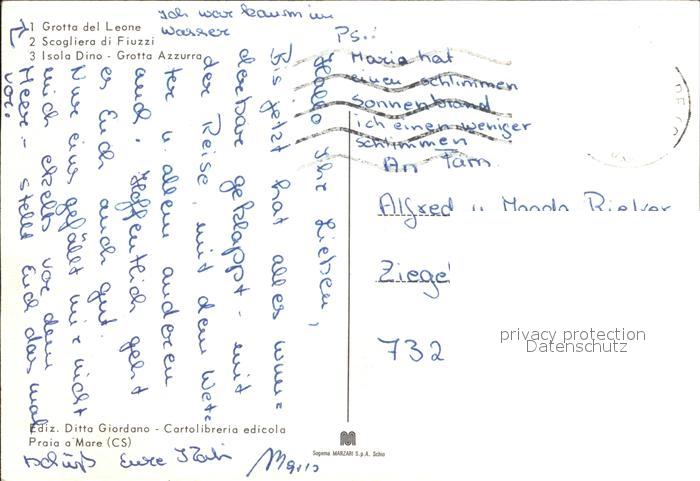 1 Grotta del Leone
2 Scogliera di Fiuzzi
3 Isola Dino - Grotta Azzurra
Hallo Ihr Lieben,
Bis jetzt hat alles wun=
derbar geklappt - mit
der Reise, mit dem Wet=
ter u. allem anderen
auch. Hoffentlich geht
es Euch auch gut.
Nur eins gefällt mir nicht
mich ekelts vor dem
Meer - stellt Euch das mal
vor!
Ich war kaum im
Wasser
Tschüß Eure Kati Mario
Ps.:
Maria hat
einen schlimmen
Sonnenbrand
ich einen weniger
schlimmen
An Fam.
Alfred u Magda
Ziegel
732
privacy protection
Datenschutz
Ediz. Ditta Giordano - Cartolibreria edicola
Praia a Mare (CS)
Sogema MARZARI S.p.A. Schio